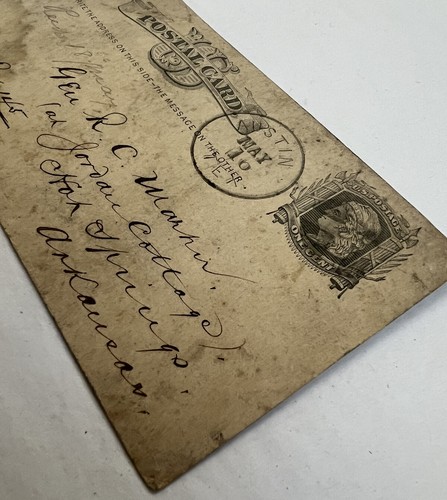 POSTAL CARD
WRITE THE ADDRESS ON THIS SIDE - THE MESSAGE ON THE OTHER
AUSTIN,
MAY
10
TEX.
U.S. POSTAGE
ONE CENT
Gen R. C.
(at Jordan Cottage).
Hot Springs.
Arkansas.